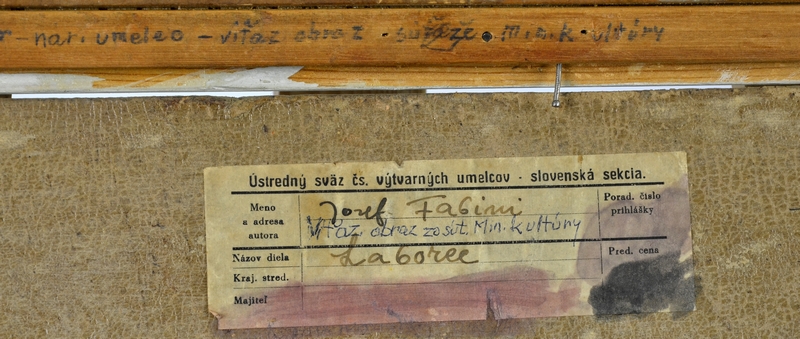 nar. umelec - víťaz obraz súťaže Min. kultúry
Ústredný sväz čs. výtvarných umelcov - slovenská sekcia.
Meno
a adresa
autora
Jozef Fabini
Víťaz. obraz zo súť. Min. kultúry
Porad. číslo
prihlášky
Názov diela
Laborec
Pred. cena
Kraj. stred.
Majiteľ